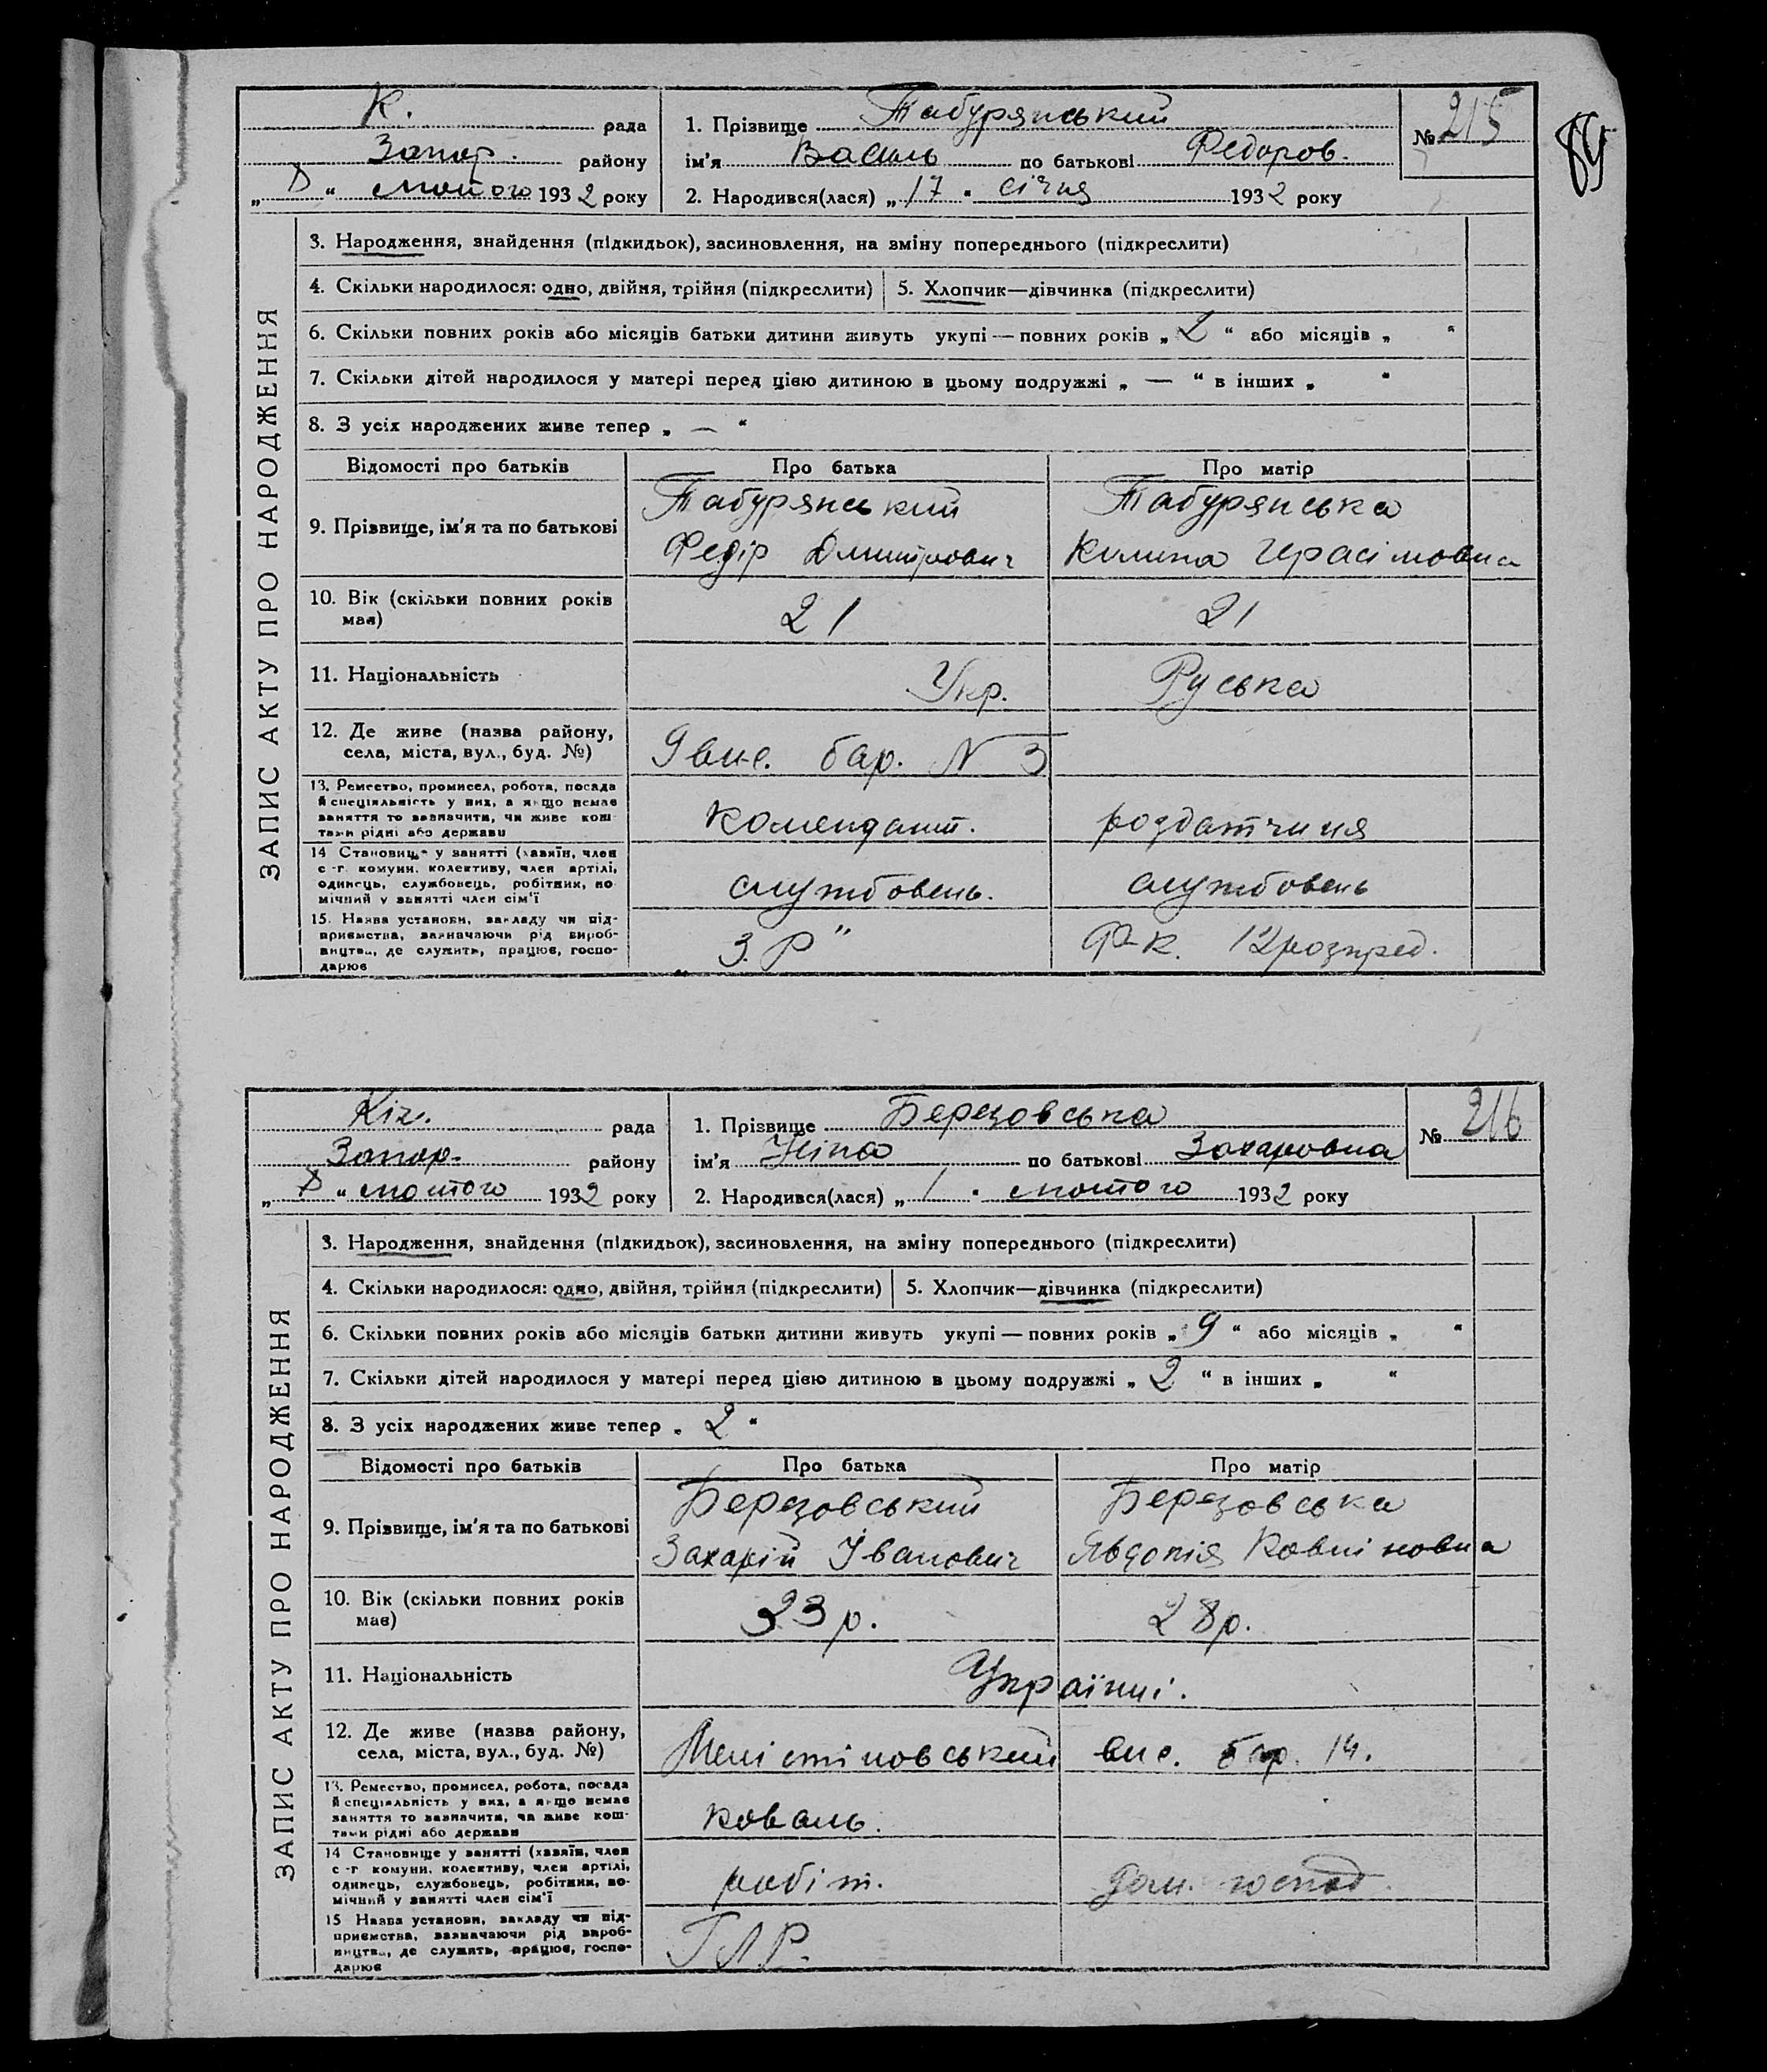 К. рада
Запор. району
„ 8 “ лютого 1932 року
1. Прізвище Табурянський
ім'я Василь по батькові Федоров.
2. Народився(лася) „ 17 “ січня 1932 року
№ 215
89
ЗАПИС АКТУ ПРО НАРОДЖЕННЯ
3. Народження, знайдення (підкидьок), засиновлення, на зміну попереднього (підкреслити)
4. Скільки народилося: одно, двійня, трійня (підкреслити) 5. Хлопчик—дівчинка (підкреслити)
6. Скільки повних років або місяців батьки дитини живуть укупі — повних років „ 2 “ або місяців „ “
7. Скільки дітей народилося у матері перед цією дитиною в цьому подружжі „ — “ в інших „ “
8. З усіх народжених живе тепер „ — “
Відомості про батьків Про батька Про матір
9. Прізвище, ім'я та по батькові
Табурянський
Федір Дмитрович
Табурянська
Килина Герасімовна
10. Вік (скільки повних років
має)
21
21
11. Національність
Укр.
Руська
12. Де живе (назва району,
села, міста, вул., буд. №)
бар. N 3
13. Ремество, промисел, робота, посада
й спеціяльність у них, а якщо немає
заняття то зазначити, чи живе кош-
тами рідні або держави
комендант.
роздатчиця
14 Становище у занятті (хазяїн, член
с.-г. комуни, колективу, член артілі,
одинець, службовець, робітник, по-
мічний у занятті член сім'ї
службовець.
службовець
15. Назва установи, закладу чи під-
приємства, зазначаючи рід вироб-
ництва, де служить, працює, госпо-
дарює
„ З. Р “
Ф-к. 12 розпред.
Кіч. рада
Запор. району
„ 8 “ лютого 1932 року
1. Прізвище Березовська
ім'я Ніна по батькові Захаровна
2. Народився(лася) „ 1 “ лютого 1932 року
№ 216
ЗАПИС АКТУ ПРО НАРОДЖЕННЯ
3. Народження, знайдення (підкидьок), засиновлення, на зміну попереднього (підкреслити)
4. Скільки народилося: одно, двійня, трійня (підкреслити) 5. Хлопчик—дівчинка (підкреслити)
6. Скільки повних років або місяців батьки дитини живуть укупі — повних років „ 9 “ або місяців „ “
7. Скільки дітей народилося у матері перед цією дитиною в цьому подружжі „ 2 “ в інших „ “
8. З усіх народжених живе тепер „ 2 “
Відомості про батьків Про батька Про матір
9. Прізвище, ім'я та по батькові
Березовський
Захарій Іванович
Березовська
Явдонія
10. Вік (скільки повних років
має)
33 р.
28 р.
11. Національність
Українці.
12. Де живе (назва району,
села, міста, вул., буд. №)
вис. бар. 14.
13. Ремество, промисел, робота, посада
й спеціяльність у них, а якщо немає
заняття то зазначити, чи живе кош-
тами рідні або держави
коваль.
14 Становище у занятті (хазяїн, член
с.-г. комуни, колективу, член артілі,
одинець, службовець, робітник, по-
мічний у занятті член сім'ї
робіт.
дом. господ.
15 Назва установи, закладу чи під-
приємства, зазначаючи рід вироб-
ництва, де служить, працює, госпо-
дарює
ГЛР.